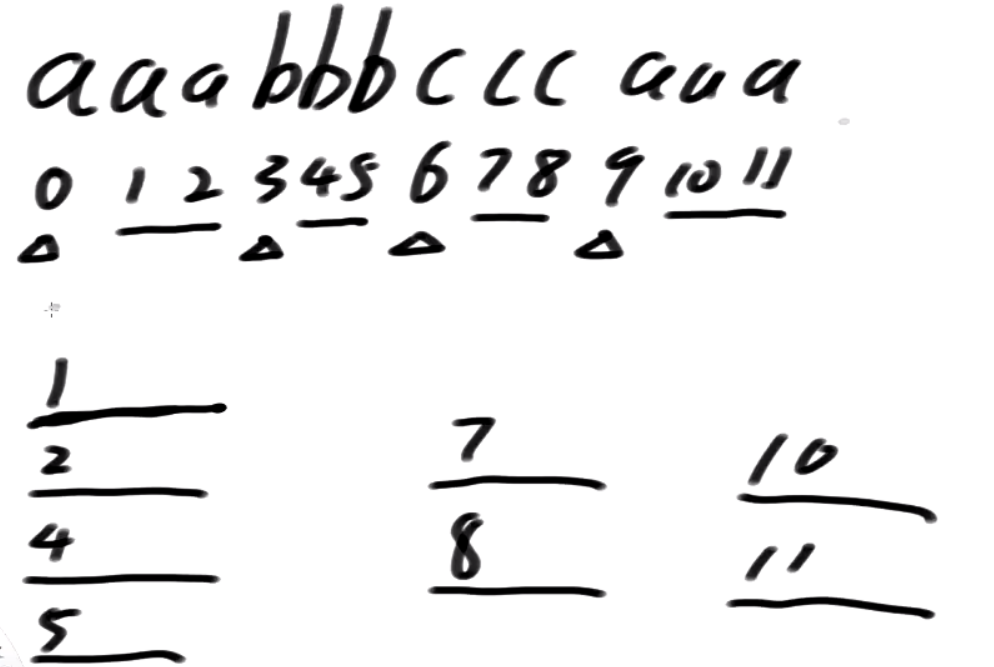 a a a b b b c c c a a a
0 1 2 3 4 5 6 7 8 9 10 11
1
2
4
5
7
8
10
11